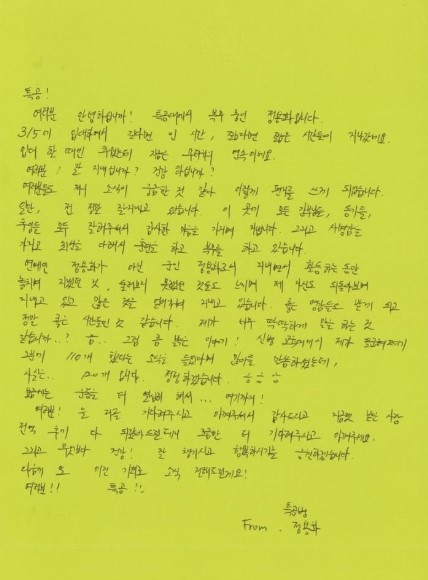 특공!
여러분 안녕하십니까! 특공대에서 복무 중인 정용화입니다.
3/5에 입대해서 길다면 긴 시간, 짧다면 짧은 시간들이 지나갔네요.
입대 할 때에는 추웠는데 지금은 무더위의 연속이네요.
여러분! 잘 지내십니까? 건강하십니까?
여러분들도 저의 소식이 궁금한 것 같아 이렇게 편지를 쓰게 되었습니다.
일단, 전 정말 잘 지내고 있습니다. 이 곳의 모든 간부님들, 동기들,
후임들 모두 잘해주셔서 감사한 마음을 가지며 지냅니다. 그리고 사명감을
가지고 최선을 다해서 훈련을 하고 복무를 하고 있습니다.
연예인 정용화가 아닌 군인 정용화로서 지내면서 활동하는 동안
놓치며 지냈던 것, 느끼지 못했던 것들도 느끼며 제 자신도 되돌아보며
지내고 있고 많은 것을 배우며 지내고 있습니다. 좋은 영향들도 받게 되고
정말 좋은 시간들인 것 같습니다. 제가 너무 딱딱하게 말을 하는 것
같습니까..? 흠.. 그럼 좀 웃긴 이야기! 신병
110개 했다는 소식을 들었는데
사실은.. 120개 입니다. 정정하겠습니다. 하하하
요즘에는 운동을 더 열심히 해서... 여기까지!
여러분! 늘 저를 기다려주시고 아껴주셔서 감사드리고 지금껏 받은 사랑
전역 후에 다 되돌려드릴테니 조금만 더 기다려주시고 아껴주세요.
그리고 무엇보다 건강! 잘 챙기시고 행복하시길 응원하겠습니다.
다음에 또 이런 기회로 소식 전해드릴게요!
여러분!! 특공!!
특공병
From. 정용화